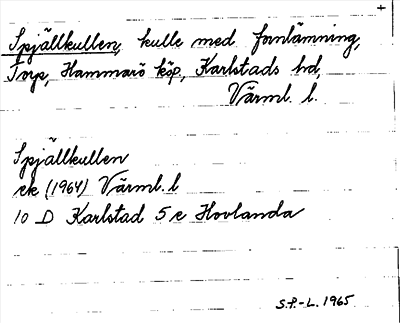 +
Spjällkullen, kulle med fornlämning,
Torp, Hammarö köp, Karlstads hd,
Värml. l.
Spjällkullen
ek (1964) Värml. l
10 D Karlstad 5 e Hovlanda
S.P.-L. 1965